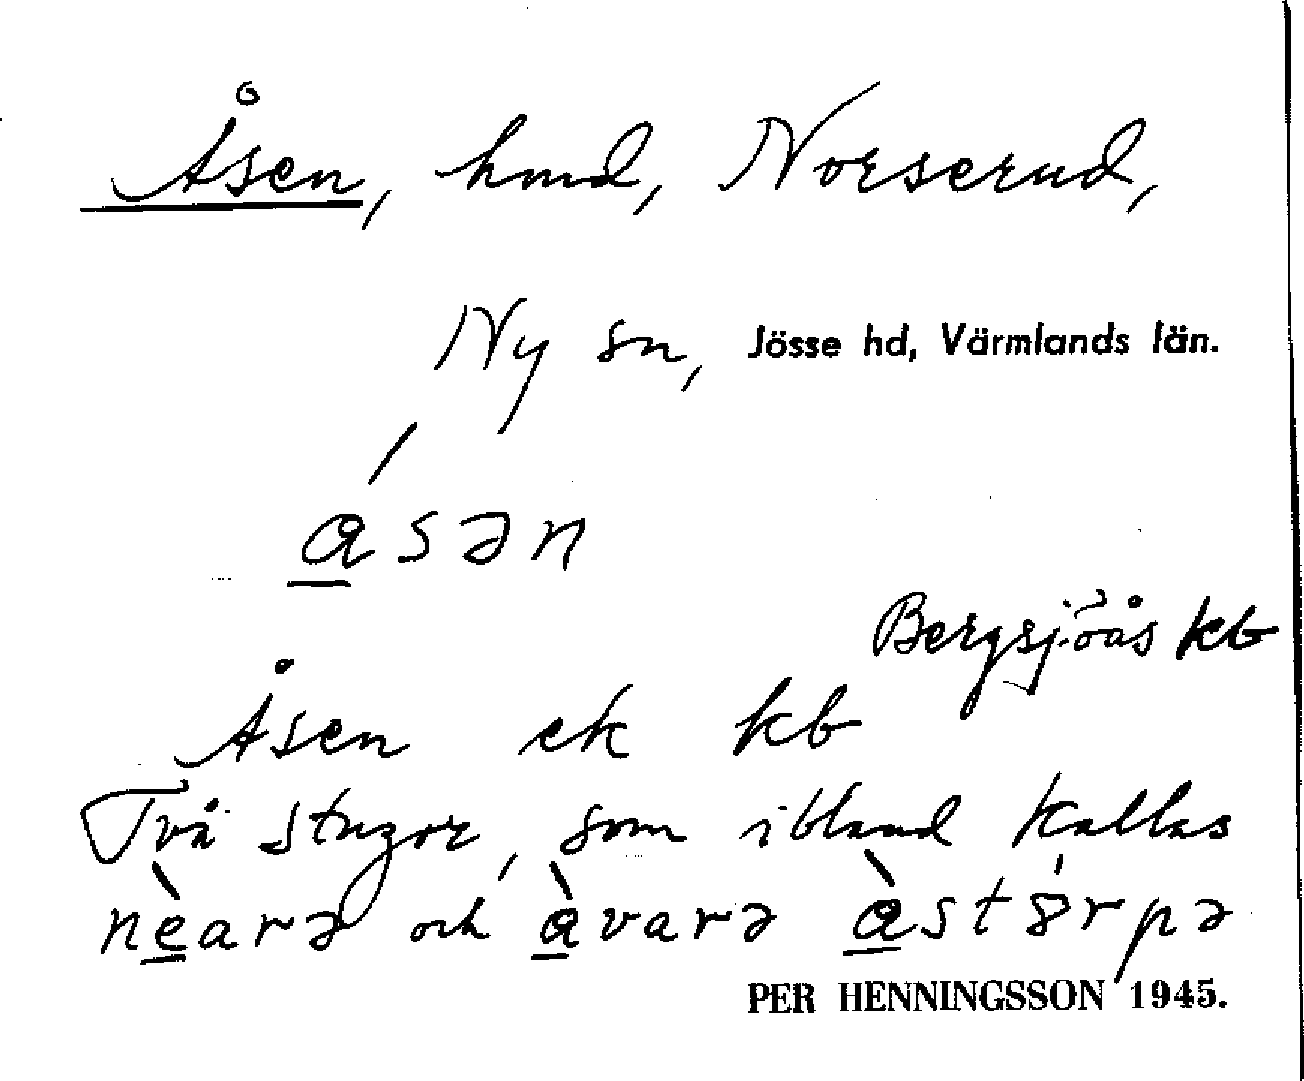 Åsen, hmd, Norserud,
Ny sn, Jösse hd, Värmlands län.
ásən
Bergsjöås kb
Åsen ek kb
Två stugor, som ibland kallas
nèarə och àvarə àstȣ́rpə
PER HENNINGSSON 1945.